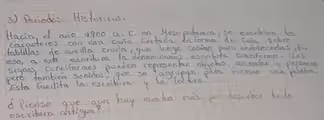 3) Períodos Históricos.
Hacia el año 2900 a. C. en Mesopotamia, se escribían los
caracteres con una cuña cortada en forma de sobre
tabletas de arcilla cruda, que luego cocían para endurecerlas. Por
eso, a esta escritura la denominamos escritura cuneiforme. Los
signos cuneiformes pueden representar objetos, animales o personas
pero también sonidos, que se agrupan para formar una palabra.
Esto facilita la escritura y la lectura.
¿ que hay mucho más de la
escritura antigua?